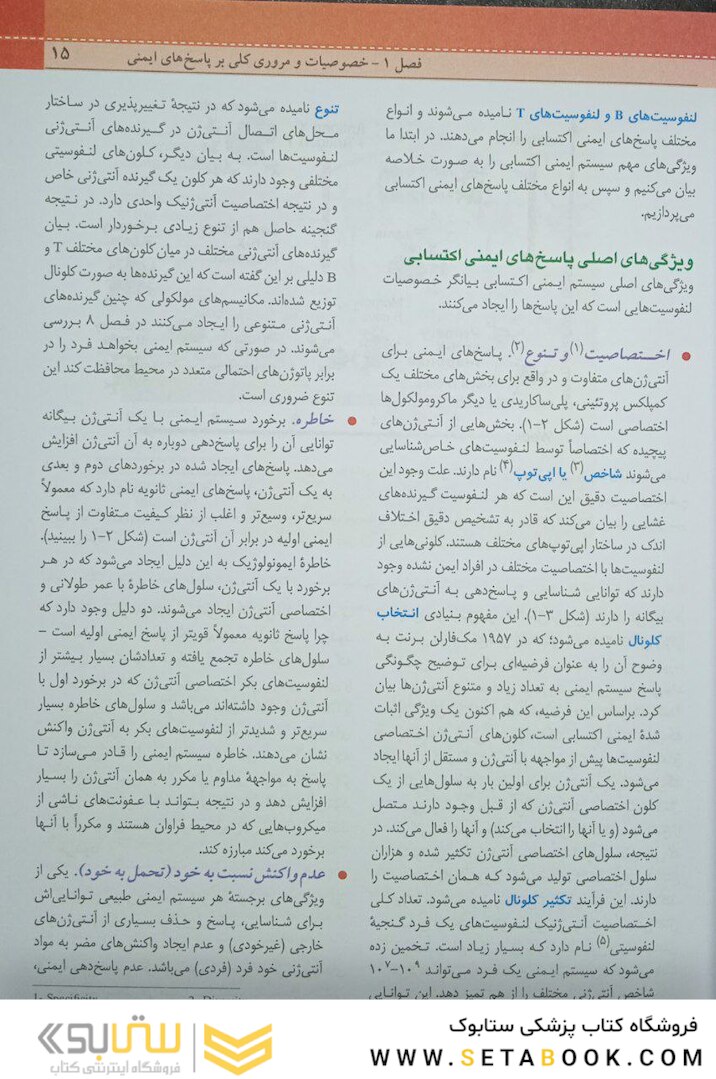 فصل ۱- خصوصیات و مروری کلی بر پاسخ‌های ایمنی
۱۵
لنفوسیت‌های B و لنفوسیت‌های T نامیده می‌شوند و انواع
مختلف پاسخ‌های ایمنی اکتسابی را انجام می‌دهند. در ابتدا ما
ویژگی‌های مهم سیستم ایمنی اکتسابی را به صورت خلاصه
بیان می‌کنیم و سپس به انواع مختلف پاسخ‌های ایمنی اکتسابی
می‌پردازیم.
ویژگی‌های اصلی پاسخ‌های ایمنی اکتسابی
ویژگی‌های اصلی سیستم ایمنی اکتسابی بیانگر خصوصیات
لنفوسیت‌هایی است که این پاسخ‌ها را ایجاد می‌کنند.
● اختصاصیت(۱) و تنوع(۲). پاسخ‌های ایمنی برای
آنتی‌ژن‌های متفاوت و در واقع برای بخش‌های مختلف یک
کمپلکس پروتئینی، پلی‌ساکاریدی یا دیگر ماکرومولکول‌ها
اختصاصی است (شکل ۲-۱). بخش‌هایی از آنتی‌ژن‌های
پیچیده که اختصاصاً توسط لنفوسیت‌های خاص‌شناسایی
می‌شوند شاخص(۳) یا اپی‌توپ(۴) نام دارند. علت وجود این
اختصاصیت دقیق این است که هر لنفوسیت گیرنده‌های
غشایی را بیان می‌کند که قادر به تشخیص دقیق اختلاف
اندک در ساختار اپی‌توپ‌های مختلف هستند. کلونی‌هایی از
لنفوسیت‌ها با اختصاصیت مختلف در افراد ایمن نشده وجود
دارند که توانایی شناسایی و پاسخ‌دهی به آنتی‌ژن‌های
بیگانه را دارند (شکل ۳-۱). این مفهوم بنیادی انتخاب
کلونال نامیده می‌شود؛ که در ۱۹۵۷ مک‌فارلن برنت به
وضوح آن را به عنوان فرضیه‌ای برای توضیح چگونگی
پاسخ سیستم ایمنی به تعداد زیاد و متنوع آنتی‌ژن‌ها بیان
کرد. براساس این فرضیه، که هم اکنون یک ویژگی اثبات
شدهٔ ایمنی اکتسابی است، کلون‌های آنتی‌ژن اختصاصی
لنفوسیت‌ها پیش از مواجهه با آنتی‌ژن و مستقل از آنها ایجاد
می‌شود. یک آنتی‌ژن برای اولین بار به سلول‌هایی از یک
کلون اختصاصی آنتی‌ژن که از قبل وجود دارند متصل
می‌شود (و یا آنها را انتخاب می‌کند) و آنها را فعال می‌کند. در
نتیجه، سلول‌های اختصاصی آنتی‌ژن تکثیر شده و هزاران
سلول اختصاصی تولید می‌شود که همان اختصاصیت را
دارند. این فرآیند تکثیر کلونال نامیده می‌شود. تعداد کلی
اختصاصیت آنتی‌ژنیک لنفوسیت‌های یک فرد گنجینهٔ
لنفوسیتی(۵) نام دارد که بسیار زیاد است. تخمین زده
می‌شود که سیستم ایمنی یک فرد می‌تواند ۱۰۹-۱۰۷
شاخص آنتی‌ژنی مختلف را از هم تمیز دهد. این توانایی
تنوع نامیده می‌شود که در نتیجهٔ تغییرپذیری در ساختار
محل‌های اتصال آنتی‌ژن در گیرنده‌های آنتی‌ژنی
لنفوسیت‌ها است. به بیان دیگر، کلون‌های لنفوسیتی
مختلفی وجود دارند که هر کلون یک گیرنده آنتی‌ژنی خاص
و در نتیجه اختصاصیت آنتی‌ژنیک واحدی دارد. در نتیجه
گنجینه حاصل هم از تنوع زیادی برخوردار است. بیان
گیرنده‌های آنتی‌ژنی مختلف در میان کلون‌های مختلف T و
B دلیلی بر این گفته است که این گیرنده‌ها به صورت کلونال
توزیع شده‌اند. مکانیسم‌های مولکولی که چنین گیرنده‌های
آنتی‌ژنی متنوعی را ایجاد می‌کنند در فصل ۸ بررسی
می‌شوند. در صورتی که سیستم ایمنی بخواهد فرد را در
برابر پاتوژن‌های احتمالی متعدد در محیط محافظت کند این
تنوع ضروری است.
● خاطره. برخورد سیستم ایمنی با یک آنتی‌ژن بیگانه
توانایی آن را برای پاسخ‌دهی دوباره به آن آنتی‌ژن افزایش
می‌دهد. پاسخ‌های ایجاد شده در برخوردهای دوم و بعدی
به یک آنتی‌ژن، پاسخ‌های ایمنی ثانویه نام دارد که معمولاً
سریع‌تر، وسیع‌تر و اغلب از نظر کیفیت متفاوت از پاسخ
ایمنی اولیه در برابر آن آنتی‌ژن است (شکل ۲-۱ را ببینید).
خاطرهٔ ایمونولوژیک به این دلیل ایجاد می‌شود که در هر
برخورد با یک آنتی‌ژن، سلول‌های خاطرهٔ با عمر طولانی و
اختصاصی آنتی‌ژن ایجاد می‌شوند. دو دلیل وجود دارد که
چرا پاسخ ثانویه معمولاً قویتر از پاسخ ایمنی اولیه است –
سلول‌های خاطره تجمع یافته و تعدادشان بسیار بیشتر از
لنفوسیت‌های بکر اختصاصی آنتی‌ژن که در برخورد اول با
آنتی‌ژن وجود داشته‌اند می‌باشد و سلول‌های خاطره بسیار
سریع‌تر و شدیدتر از لنفوسیت‌های بکر به آنتی‌ژن واکنش
نشان می‌دهند. خاطره سیستم ایمنی را قادر می‌سازد تا
پاسخ به مواجههٔ مداوم یا مکرر به همان آنتی‌ژن را بسیار
افزایش دهد و در نتیجه بتواند با عفونت‌های ناشی از
میکروب‌هایی که در محیط فراوان هستند و مکرراً با آنها
برخورد می‌کند مبارزه کند.
● عدم واکنش نسبت به خود (تحمل به خود). یکی از
ویژگی‌های برجستهٔ هر سیستم ایمنی طبیعی توانایی‌اش
برای شناسایی، پاسخ و حذف بسیاری از آنتی‌ژن‌های
خارجی (غیرخودی) و عدم ایجاد واکنش‌های مضر به مواد
آنتی‌ژنی خود فرد (فردی) می‌باشد. عدم پاسخ‌دهی ایمنی،
1- Specificity
فروشگاه کتاب پزشکی ستابوک
WWW.SETABOOK.COM
ستابوک
فروشگاه اینترنتی کتاب